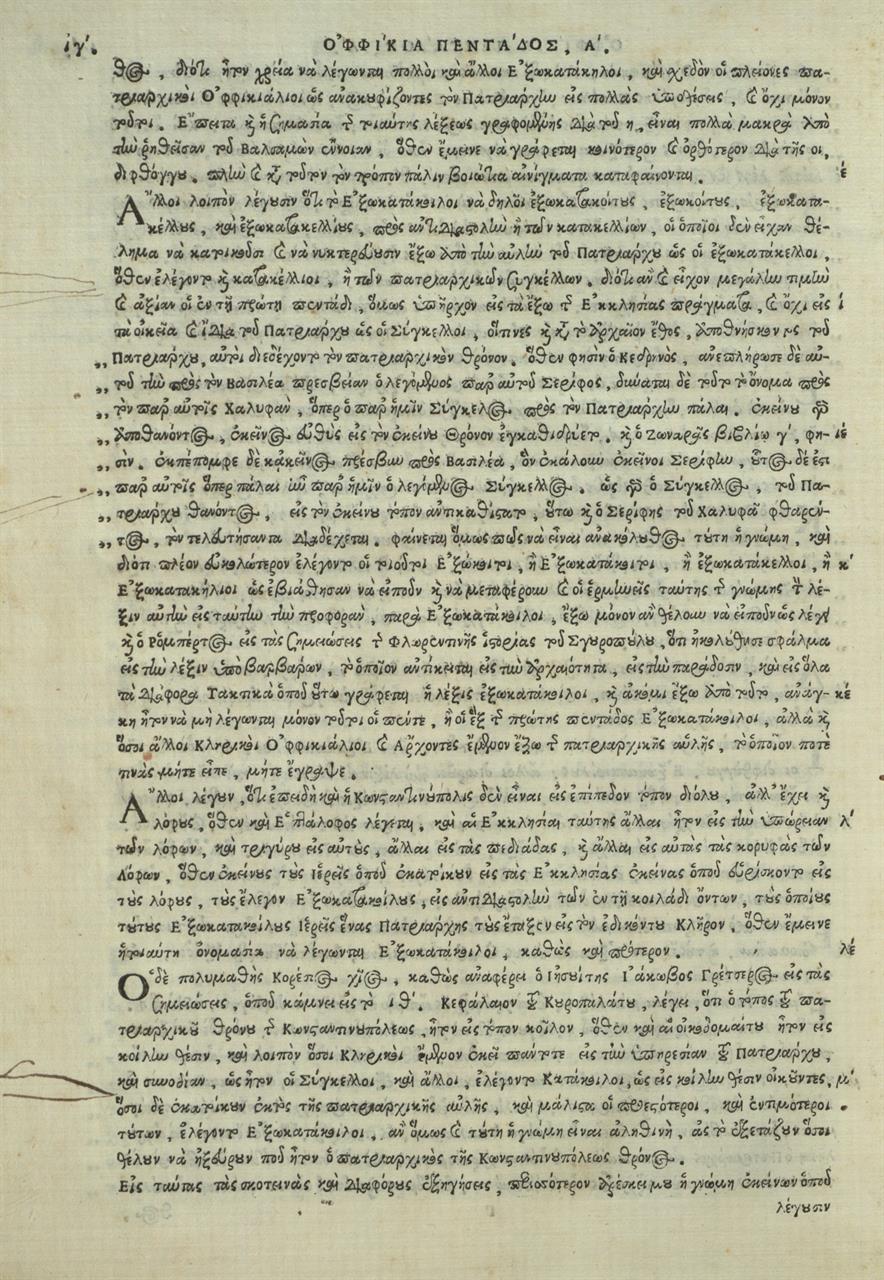 ιγ'. ΟΦΦΙΚΙΑ ΠΕΝΤΑΔΟΣ, Α'.
θος, διότι ἦτον χρεία νὰ λέγωνται πολλοὶ καὶ ἄλλοι Ἐξωκατάκηλοι, καὶ σχεδὸν οἱ πλείονες πα-
τριαρχικοὶ Ὀφφικιάλιοι ὡς ἀνακουφίζοντες τὸν Πατριάρχην εἰς πολλὰς ὑποθέσεις, καὶ ὄχι μόνον
τοῦτοι. Ἔπειτα καὶ ἡ σημασία τῆς τοιαύτης λέξεως γραφομένης διὰ τοῦ η, εἶναι πολλὰ μακρὰ ἀπὸ
τὴν ῥηθεῖσαν τοῦ Βαλσαμὼν ἔννοιαν, ὅθεν ἔμεινε νὰ γράφεται κοινότερον καὶ ὀρθότερον διὰ τῆς οι,
διφθόγγου. πλὴν καὶ κατὰ τοῦτον τὸν τρόπον πάλιν βοιώτια αἰνίγματα καταφαίνονται. έ
Ἄλλοι λοιπὸν λέγουσιν ὅτι τὸ Ἐξωκατάκοιλος νὰ δηλοῖ ἐξωκατακοίτους, ἐξωκοίτους, ἐξωκατα-
κέλλους, καὶ ἐξωκατακελλίους, πρὸς ἀντιδιαστολὴν ἢ τῶν κατακελλίων, οἱ ὁποῖοι δὲν εἶχαν θέ-
λημα νὰ κατοικοῦσι καὶ νὰ νυκτερεύουσιν ἔξω ἀπὸ τὴν αὐλὴν τοῦ Πατριάρχου ὡς οἱ ἐξωκατάκελλοι,
ὅθεν ἐλέγοντο καὶ κατακέλλιοι, ἢ τῶν πατριαρχικῶν συγκέλλων. διότι ἂν καὶ εἶχον μεγάλην τιμὴν
καὶ ἀξίαν οἱ ἐν τῇ πρώτῃ πεντάδι, ὅμως ὑπῆρχον εἰς τὰ ἔξω τῆς Ἐκκλησίας πράγματα, καὶ ὄχι εἰς ί
τὰ οἰκεῖα καὶ ἴδια τοῦ Πατριάρχου ὡς οἱ Σύγκελλοι, οἵτινες καὶ κατὰ τὸ ἀρχαῖον ἔθος, ἀποθνήσκοντος τοῦ
Πατριάρχου, αὐτοὶ διεδέχοντο τὸν πατριαρχικὸν θρόνον. ὅθεν φησὶν ὁ Κεδρηνὸς, ἀνεπλήρωσε δὲ αὐ-
„ τοῦ τὴν πρὸς τὸν Βασιλέα πρεσβείαν ὁ λεγόμενος παρ' αὐτοῦ Σερίφος, δύναται δὲ τοῦτο τὸ ὄνομα πρὸς
„ τὸν παρ' αὐτοῖς Χαλυφὰν, ὅπερ ὁ παρ' ἡμῖν Σύγκελος πρὸς τὸν Πατριάρχην πάλαι. ἐκείνου γὰρ
„ ἀποθανόντος, ἐκεῖνος εὐθὺς εἰς τὸν ἐκείνου Θρόνον ἐγκαθιδρύετο. καὶ ὁ Ζωναρᾶς βιβλίῳ γ', φη- ιέ
„ σίν. ἐκπέπομφε δὲ κἀκεῖνος πρέσβυν πρὸς Βασιλέα, ὃν ἐκάλουν ἐκεῖνοι Σερίφην, οὗτος δέ ἐστι
„ παρ' αὐτοῖς ὅπερ πάλαι ἦν παρ' ἡμῖν ὁ λεγόμενος Σύγκελλος. ὡς γὰρ ὁ Σύγκελλος, τοῦ Πα-
„ τριάρχου θανόντος, εἰς τὸν ἐκείνου τόπον ἀντικαθίστατο, οὕτω καὶ ὁ Σερίφης τοῦ Χαλυφᾶ φθαρέν-
„ τος, τὸν τελευτήσαντα διαδέχεται. φαίνεται ὅμως πῶς νὰ εἶναι ἀνακόλουθος τούτη ἡ γνώμη, καὶ
διότι πλέον εὐκολώτερον ἐλέγοντο οἱ τοιοῦτοι Ἐξώκοιτοι, ἢ Ἐξωκατάκοιτοι, ἢ ἐξωκατάκελλοι, ἢ κ'
Ἐξωκατακήλιοι ὡς ἐβιάσθησαν νὰ εἰποῦν καὶ νὰ μεταφέρουν καὶ οἱ ἑρμηνεῖς ταύτης τῆς γνώμης τὴν λέ-
ξιν αὐτὴν εἰς ταύτην τὴν προφορὰν, παρὰ Ἐξωκατάκοιλοι, ἔξω μόνον ἂν θέλουν νὰ εἰποῦν ὡς λέγει
καὶ ὁ Ῥομπέρτος εἰς τὰς σημειώσεις τῆς Φλωρεντινῆς ἱστορίας τοῦ Σγυροπούλου, ὅτι ἠκολούθησε σφάλμα
εἰς τὴν λέξιν ὑπὸ βαρβάρων, τὸ ὁποῖον ἀντίκειται εἰς τὴν ἀρχαιότητα, εἰς τὴν παράδοσιν, καὶ εἰς ὅλα
τὰ διάφορα Τακτικὰ ὁποῦ οὕτω γράφεται ἡ λέξις ἐξωκατάκοιλοι, καὶ ἀκόμι ἔξω ἀπὸ τοῦτο, ἀνάγ- κέ
κη ἦτον νὰ μὴ λέγωνται μόνον τοῦτοι οἱ πέντε, ἢ οἱ ἓξ τῆς πρώτης πεντάδος Ἐξωκατάκοιλοι, ἀλλὰ καὶ
ὅσοι ἄλλοι Κληρικοὶ Ὀφφικιάλιοι καὶ Ἄρχοντες ἔμενον ἔξω τῆς πατριαρχικῆς αὐλῆς, τὸ ὁποῖον ποτὲ
τινὰς μήτε εἶπε, μήτε ἔγραψε.
Ἄλλοι λέγουν, ὅτι ἐπειδὴ καὶ ἡ Κωνσταντινούπολις δὲν εἶναι εἰς ἐπίπεδον τόπον διόλου, ἀλλ' ἔχει καὶ
λόφους, ὅθεν καὶ Ἑπτάλοφος λέγεται, καὶ αἱ Ἐκκλησίαι ταύτης ἄλλαι ἦτον εἰς τὴν ὑπώρειαν λ'
τῶν λόφων, καὶ τριγύρου εἰς αὐτοὺς, ἄλλαι εἰς τὰς πεδιάδας, καὶ ἄλλαι εἰς αὐτὰς τὰς κορυφὰς τῶν
Λόφων, ὅθεν ἐκείνους τοὺς Ἱερεῖς ὁποῦ ἐκατοίκουν εἰς τὰς Ἐκκλησίας ἐκείνας ὁποῦ εὑρίσκοντο εἰς
τοὺς λόφους, τοὺς ἔλεγον Ἐξωκατακοίλους, εἰς ἀντιδιαστολὴν τῶν ἐν τῇ κοιλάδι ὄντων, τοὺς ὁποίους
τούτους Ἐξωκατακοίλους Ἱερεῖς ἕνας Πατριάρχης τοὺς ἔταξεν εἰς τὸν ἐδικόντου Κλῆρον, ὅθεν ἔμεινε
ἡ τοιαύτη ὀνομασία νὰ λέγωνται Ἐξωκατάκοιλοι, καθὼς καὶ πρότερον. λέ
Ὁ δὲ πολυμαθὴς Κορέσιος Χῖος, καθὼς ἀναφέρει ὁ Ἰησουίτης Ἰάκωβος Γρέτσερος εἰς τὰς
σημειώσεις, ὁποῦ κάμνει εἰς τὸ ιθ'. Κεφάλαιον τοῦ Κυροπαλάτου, λέγει, ὅτι ὁ τόπος τοῦ πα-
τριαρχικοῦ θρόνου τῆς Κωνσταντινουπόλεως, ἦτον εἰς τόπον κοῖλον, ὅθεν καὶ αἱ οἰκοδομαίτου ἦτον εἰς
κοίλην θέσιν, καὶ λοιπὸν ὅσοι Κληρικοὶ ἔμενον ἐκεῖ πάντοτε εἰς τὴν ὑπηρεσίαν τοῦ Πατριάρχου,
καὶ συνοδίαν, ὡς ἦτον οἱ Σύγκελλοι, καὶ ἄλλοι, ἐλέγοντο Κατάκοιλοι, ὡς εἰς κοίλην θέσιν οἰκοῦντες, μ'
ὅσοι δὲ ἐκατοίκουν ἐκτὸς τῆς πατριαρχικῆς αὐλῆς, καὶ μάλιστα οἱ πρεσβύτεροι, καὶ ἐντιμότεροι
τούτων, ἐλέγοντο Ἐξωκατάκοιλοι, ἂν ὅμως καὶ τούτη ἡ γνώμη εἶναι ἀληθινὴ, ἂς τὸ ἐξετάζουν ὅσοι
θέλουν νὰ ἠξεύρουν ποῦ ἦτον ὁ πατριαρχικὸς τῆς Κωνσταντινουπόλεως θρόνος.
Εἰς ταύτας τὰς σκοτεινὰς καὶ διαφόρους ἐξηγήσεις, περισσότερον ἀρέσκει μου ἡ γνώμη ἐκείνων ὁποῦ
λέγουσιν